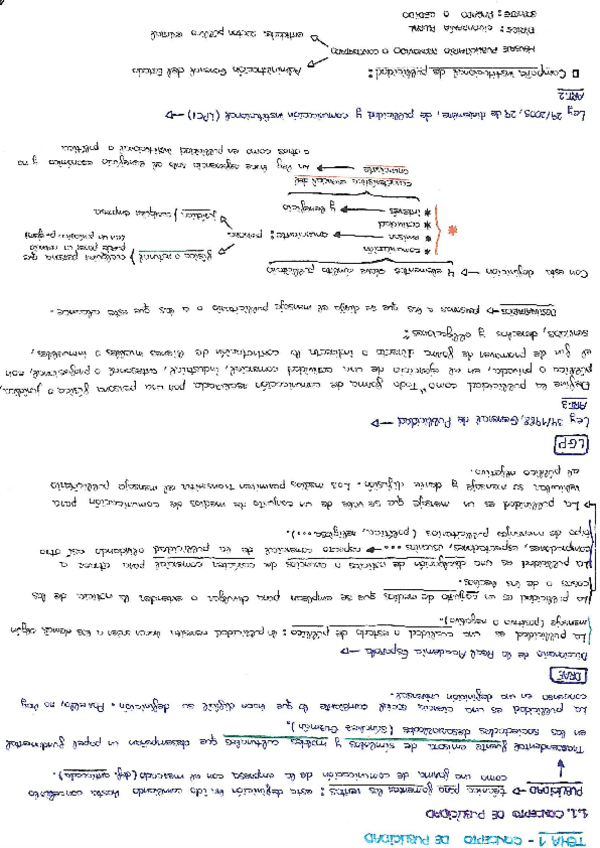 TEMA 1 - CONCEPTO DE PUBLICIDAD
1.1. CONCEPTO DE PUBLICIDAD
PUBLICIDAD → técnica para fomentar las ventas: esta definición ha ido cambiando hasta concebirlo
como una forma de comunicación de la empresa con el mercado (def. anticuada).
Trascendental fuente emisora de símbolos y modelos culturales que desempeñan un papel fundamental
en las sociedades desarrolladas (Sánchez Guzmán).
La publicidad es una ciencia social cambiante lo que hace difícil su definición. Por ello, no hay
consenso en una definición universal.
DRAE
Diccionario de la Real Academia Española →
La publicidad es una cualidad o estado de público: la publicidad consiste en acercar a los demás algún
mensaje (positivo o negativo).
La publicidad es un conjunto de medios que se emplean para divulgar o extender la noticia de las
cosas o de los hechos.
La publicidad es una divulgación de noticias o anuncios de carácter comercial para atraer a
compradores, espectadores, usuarios ... → aspecto comercial de la publicidad olvidando así otro
tipo de mensajes publicitarios (políticos, religiosos...).
→ La publicidad es un mensaje que se vale de un conjunto de medios de comunicación para
vehicular su mensaje y darle difusión. Los medios permiten transmitir el mensaje publicitario
al público objetivo.
LGP
Ley 34/1988, General de Publicidad →
ART.2
Define la publicidad como "Toda forma de comunicación realizada por una persona física o jurídica,
pública o privada, en el ejercicio de una actividad comercial, industrial, artesanal o profesional, con
el fin de promover de forma directa o indirecta la contratación de bienes muebles o inmuebles,
servicios, derechos y obligaciones"
DESTINATARIOS → personas a las que se dirija el mensaje publicitario o a las que este alcance.
Con esta definición → 4 elementos clave ámbito publicitario
* comunicación
* emisor → anunciante: personas
física o natural) cualquier persona que
puede poner un anuncio
jurídica) cualquier empresa
* actividad
* interés y beneficio
característica esencial del
anunciante → un fin
o otros como en publicidad institucional o política
Ley 29/2005, 29 de diciembre, de publicidad y comunicación institucional (LPCI) →
ART.2
□ Campaña institucional de publicidad:
MENSAJE PUBLICITARIO PROMOVIDO O CONTRATADO
Administración General del Estado
entidades sector público estatal
SOPORTE: PAGADO O CEDIDO